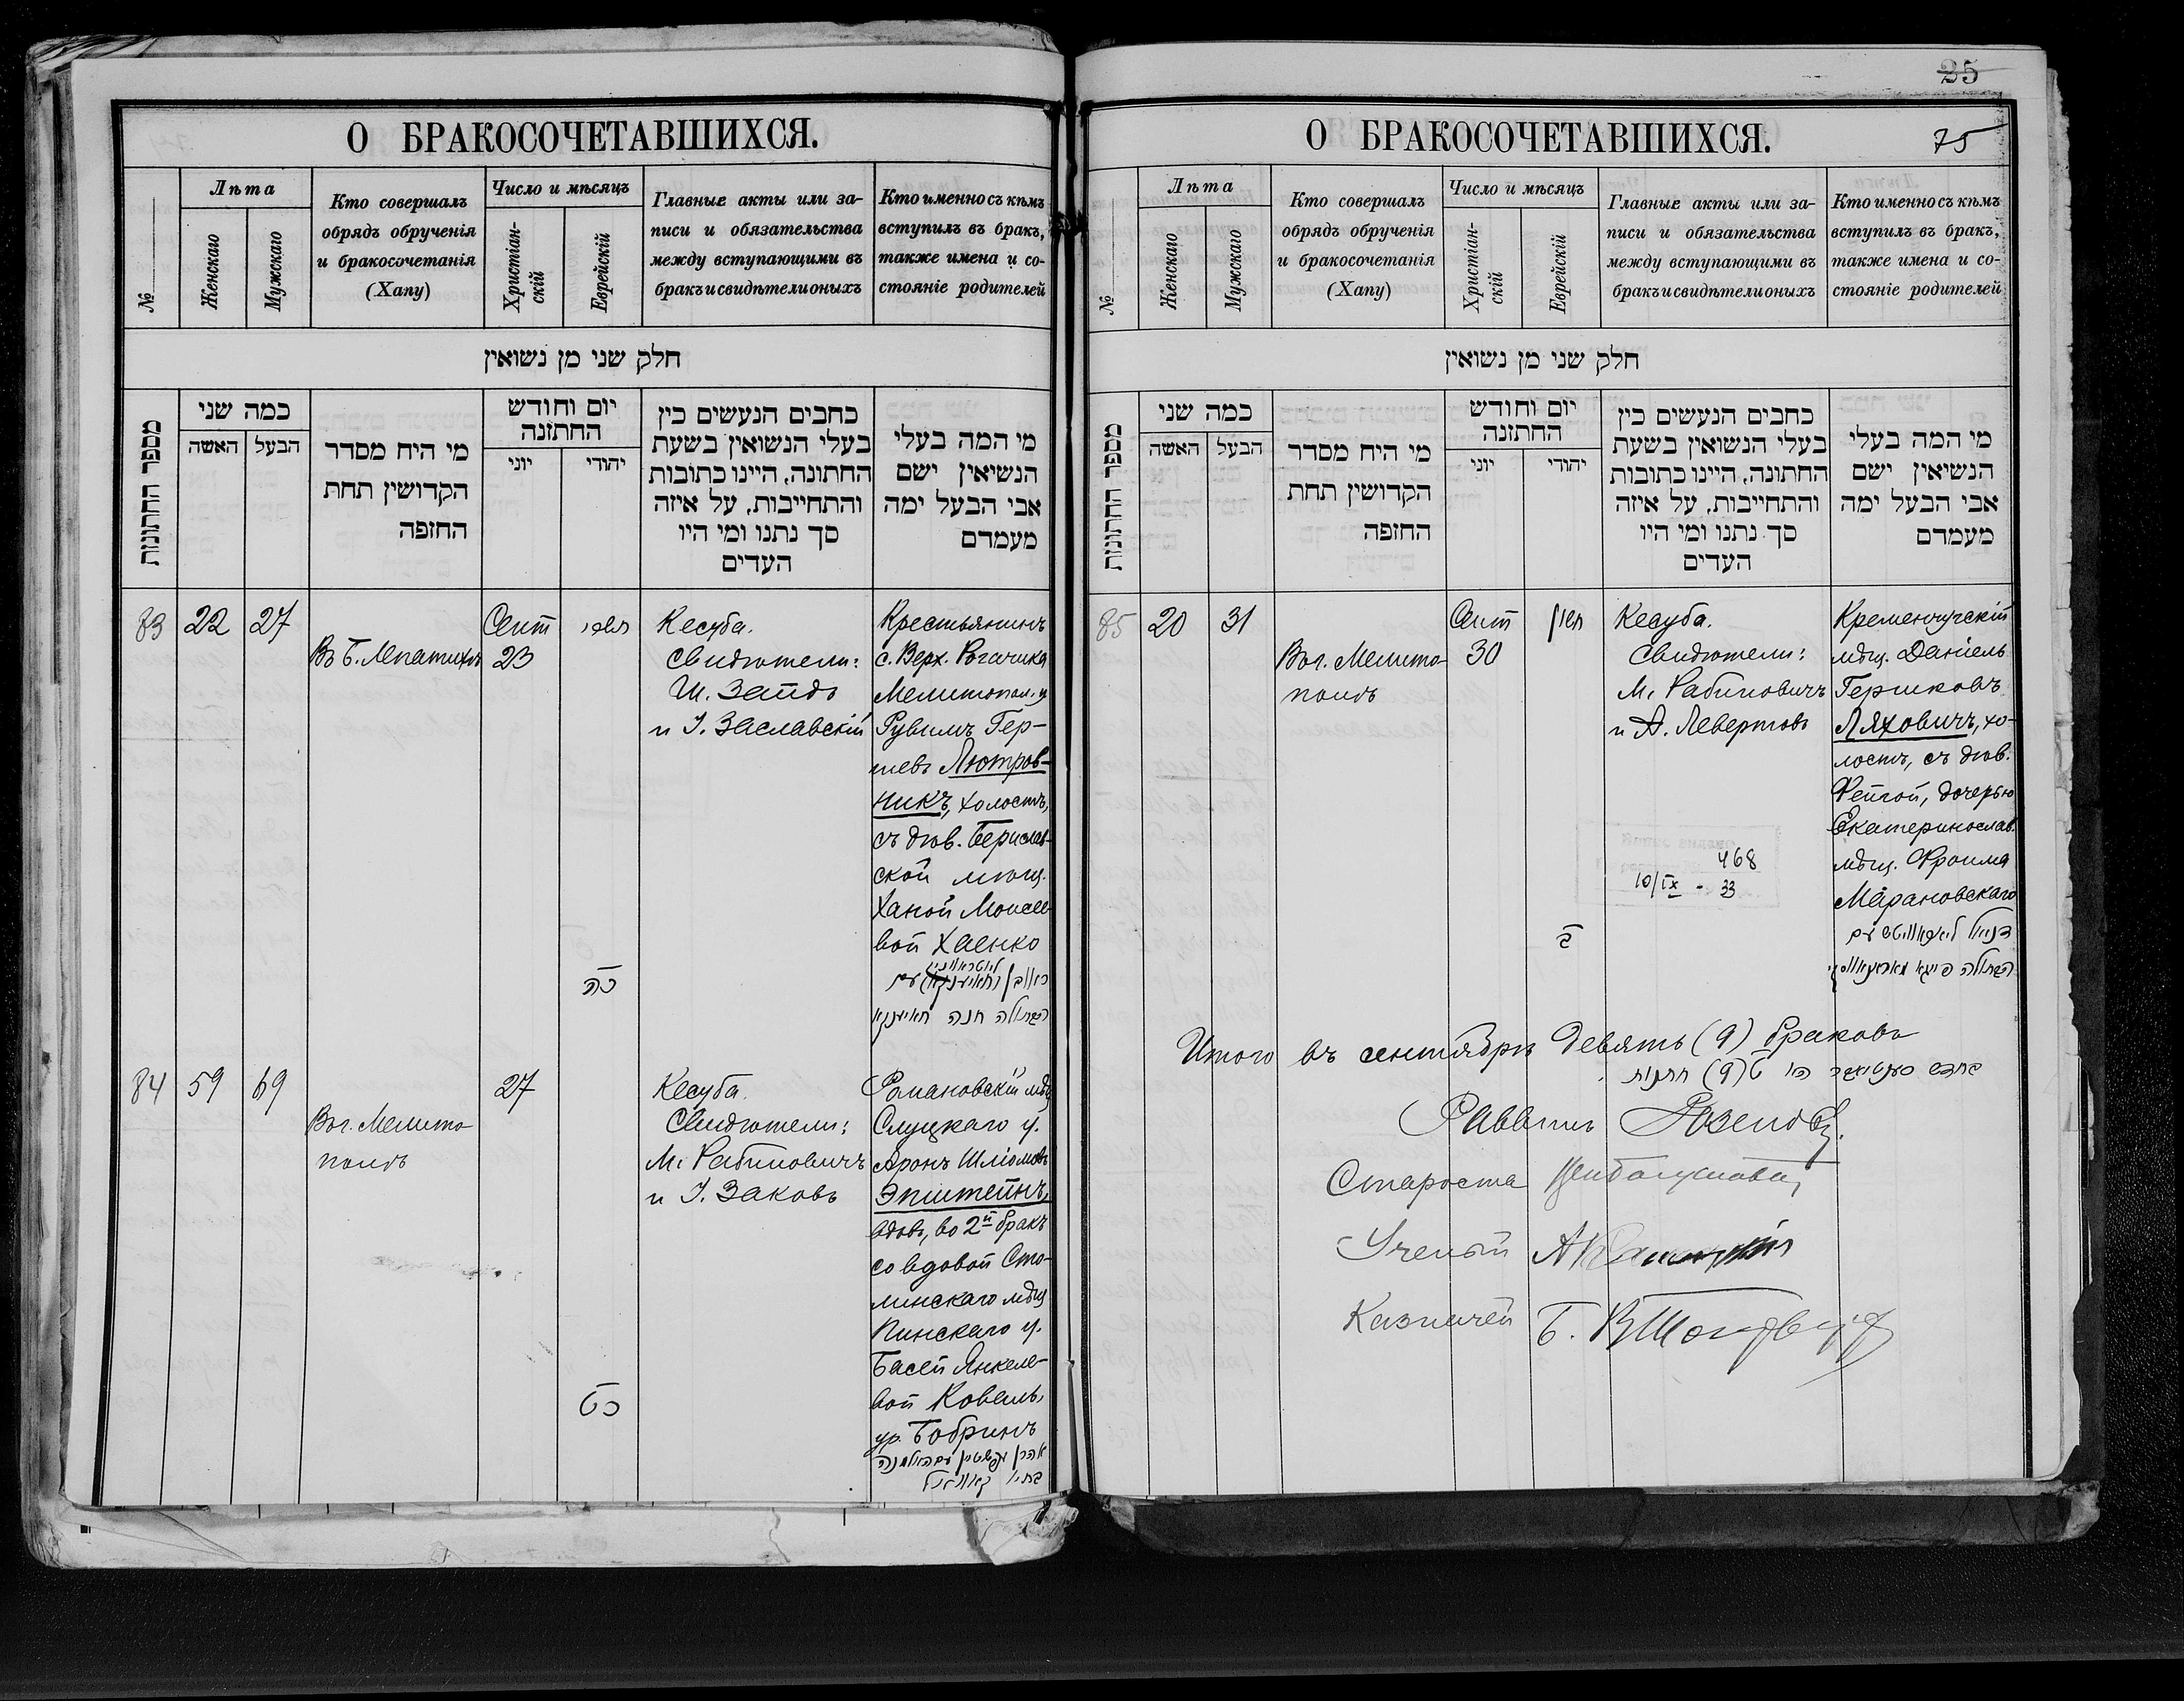 О БРАКОСОЧЕТАВШИХСЯ.
№
Лѣта
Женскаго
Мужскаго
Кто совершалъ
обрядъ обрученія
и бракосочетанія
(Хапу)
Число и мѣсяцъ
Христіан-
скій
Еврейскій
Главные акты или за-
писи и обязательства
между вступающими въ
бракъ и свидѣтели оныхъ
Кто именно съ кѣмъ
вступилъ въ бракъ,
также имена и со-
стояніе родителей
חלק שני מן נשואין
מספר החתונות
כמה שני
האשה
הבעל
מי היח מסדר
הקדושין תחת
החזפה
יום וחודש
החתזנה
יוני
יהודי
כחבים הנעשים כין
בעלי הנשואין בשעת
החתונה, היינו כתובות
והתחייבות, על איזה
סך נתנו ומי היו
העדים
מי המה בעלי
הנשיאין ישם
אבי הבעל ימה
מעמדם
83
22
27
Въ Б. Лепатихѣ
Сент
23
תשרי
כה
Кесуба.
Свидѣтели:
Ш. Зайдъ
и І. Заславскій
Крестьянинъ
с. Верх. Рогачика
Мелитопол. у
Рувимъ Гер-
шевъ Лютров-
никъ, холостъ,
съ дѣв. Берислав-
ской мѣщ.
Ханой Моисее-
вой Хаенко
ראובן
הבתולה חנה חאיענקא
84
59
69
Въ г. Мелито
полѣ
27
כט
Кесуба.
Свидѣтели:
М. Рабиновичъ
и І. Заковъ
Романовскій мѣщ
Слуцкаго у.
Аронъ Шліомовъ
Эпштейнъ,
вдовъ, во 2й бракъ
со вдовой Сто-
линскаго мѣщ
Пинскаго у.
Басей Янкеле-
вой Ковель,
ур. Бобринъ
אהרן עפשטיין עם האלמנה
באסי קאוועל
25
О БРАКОСОЧЕТАВШИХСЯ.
75
№
Лѣта
Женскаго
Мужскаго
Кто совершалъ
обрядъ обрученія
и бракосочетанія
(Хапу)
Число и мѣсяцъ
Христіан-
скій
Еврейскій
Главные акты или за-
писи и обязательства
между вступающими въ
бракъ и свидѣтели оныхъ
Кто именно съ кѣмъ
вступилъ въ бракъ,
также имена и со-
стояніе родителей
חלק שני מן נשואין
מספר החתונות
כמה שני
האשה
הבעל
מי היח מסדר
הקדושין תחת
החזפה
יום וחודש
החתזנה
יוני
יהודי
כחבים הנעשים כין
בעלי הנשואין בשעת
החתונה, היינו כתובות
והתחייבות, על איזה
סך נתנו ומי היו
העדים
מי המה בעלי
הנשיאין ישם
אבי הבעל ימה
מעמדם
85
20
31
Въ г. Мелито-
полѣ
Сент
30
חשון
ב
Кесуба.
Свидѣтели:
М. Рабиновичъ
и А. Левертовъ
468
10/IX - 33
Кременчугскій
мѣщ. Даніель
Гершковъ
Ляховичъ, хо-
лостъ, съ дѣв.
Фейгой, дочерью
Екатеринослав.
мѣщ. Фроима
Марановскаго
דניאל ליאחאוויטש עם
הבתולה פייגא מאראנאווסקי
Итого въ сентябрѣ девять (9) браковъ
בחדש סענטיאבר היו ט (9) חתונות
Раввинъ
Староста
Ученый
Казначей Б.